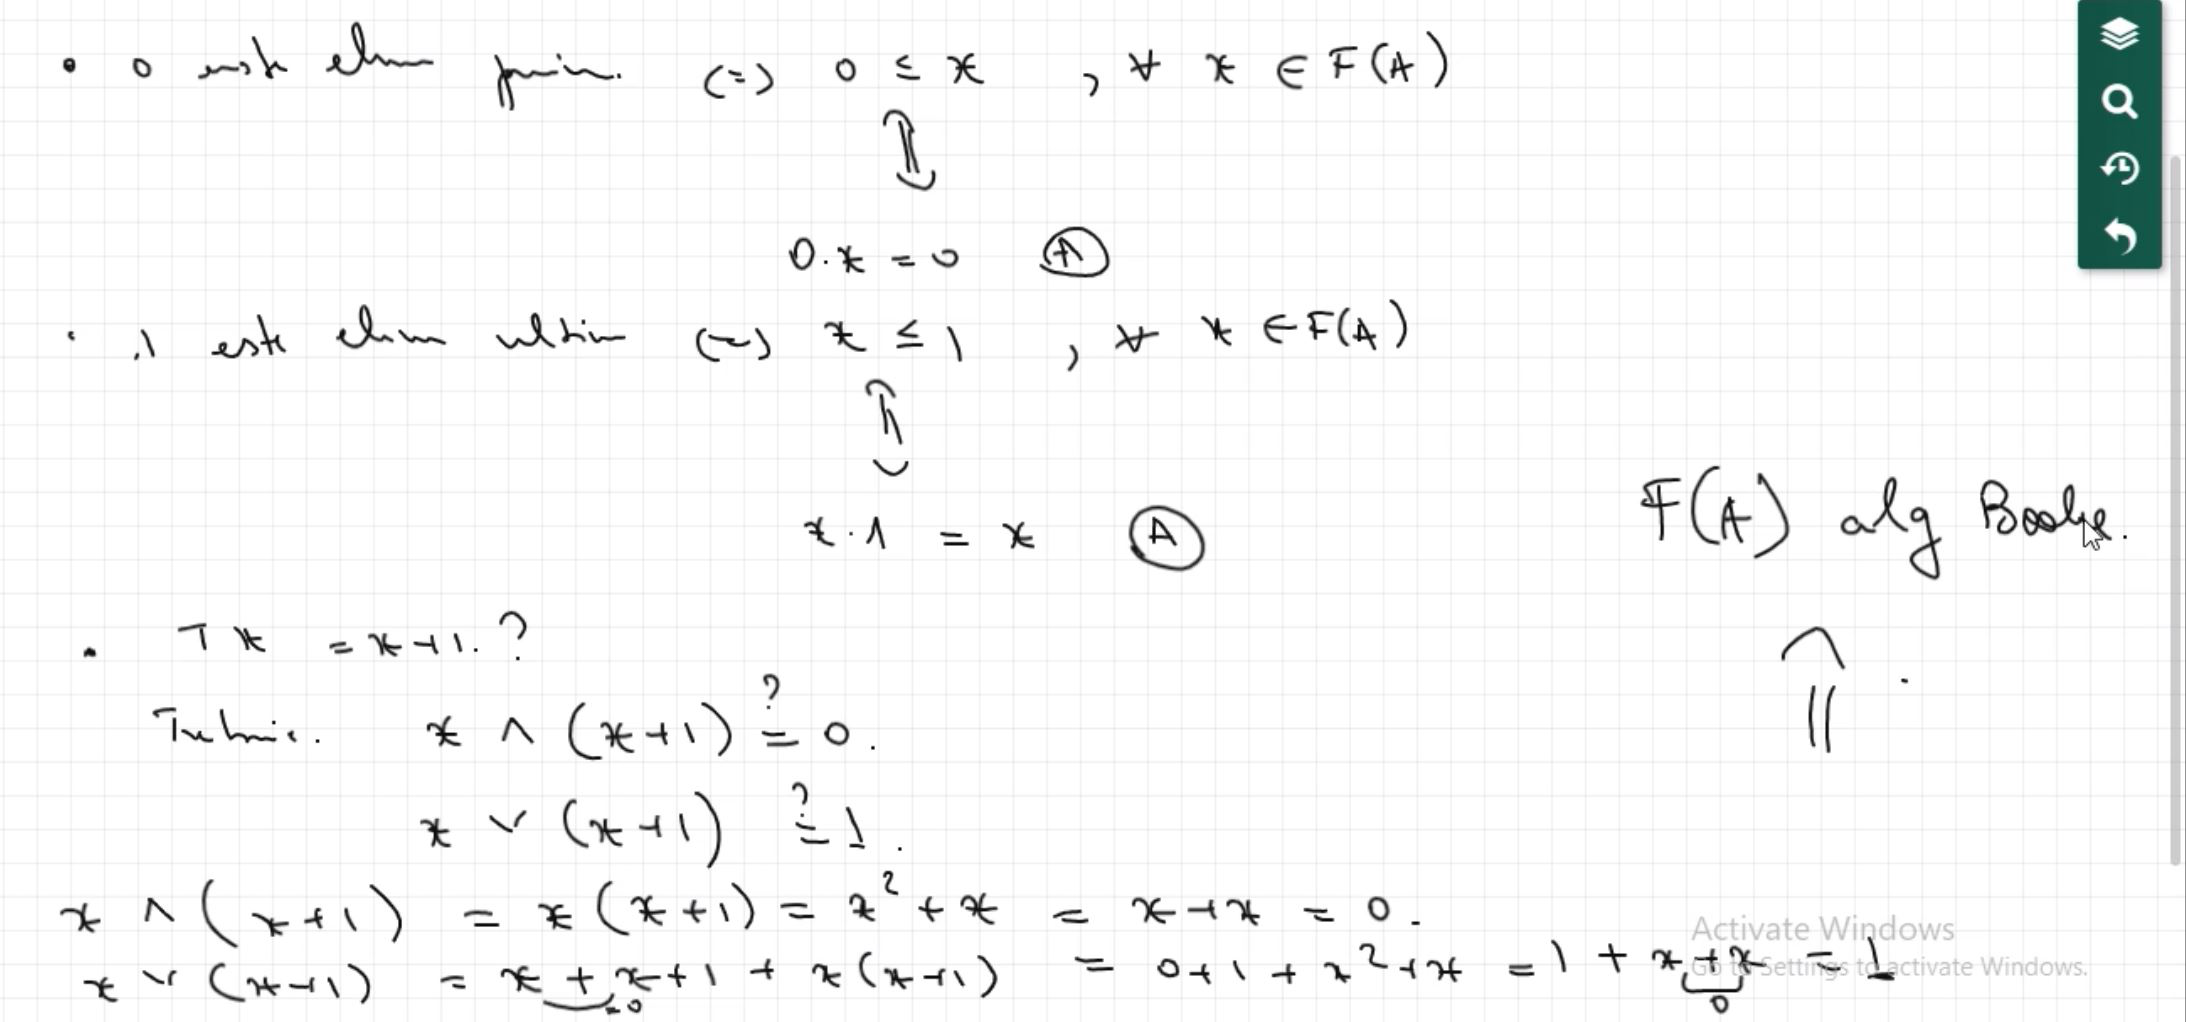 • 0 este elem prim. (=) 0 ≤ x , ∀ x ∈ F(A)
⇕
0·x = 0 Ⓐ
• 1 este elem ultim (=) x ≤ 1 , ∀ x ∈ F(A)
⇕
x·1 = x Ⓐ
F(A) alg Boole.
⇑
• ¬x = x+1. ?
Trebuie. x ∧ (x+1) ?= 0.
x ∨ (x+1) ?= 1.
x ∧ (x+1) = x(x+1) = x² + x = x+x = 0.
x ∨ (x+1) = x + x+1 + x(x+1) = 0+1 + x²+x = 1 + x+x = 1
=0 0
Activate Windows
Go to Settings to activate Windows.